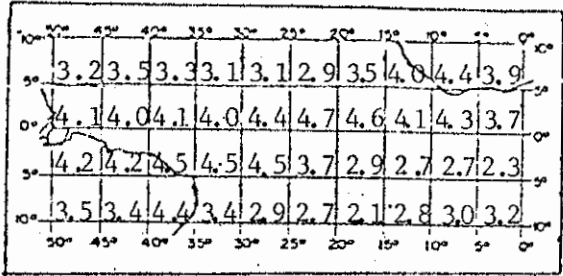 50° 45° 40° 35° 30° 25° 20° 15° 10° 5° 0°
10° 10°
3.2 3.5 3.3 3.1 3.1 2.9 3.5 4.0 4.4 3.9
5° 5°
4.1 4.0 4.1 4.0 4.4 4.7 4.6 4.1 4.3 3.7
0° 0°
4.2 4.2 4.5 4.5 4.5 3.7 2.9 2.7 2.7 2.3
5° 5°
3.5 3.4 4.4 3.4 2.9 2.7 2.1 2.8 3.0 3.2
10° 10°
50° 45° 40° 35° 30° 25° 20° 15° 10° 5° 0°